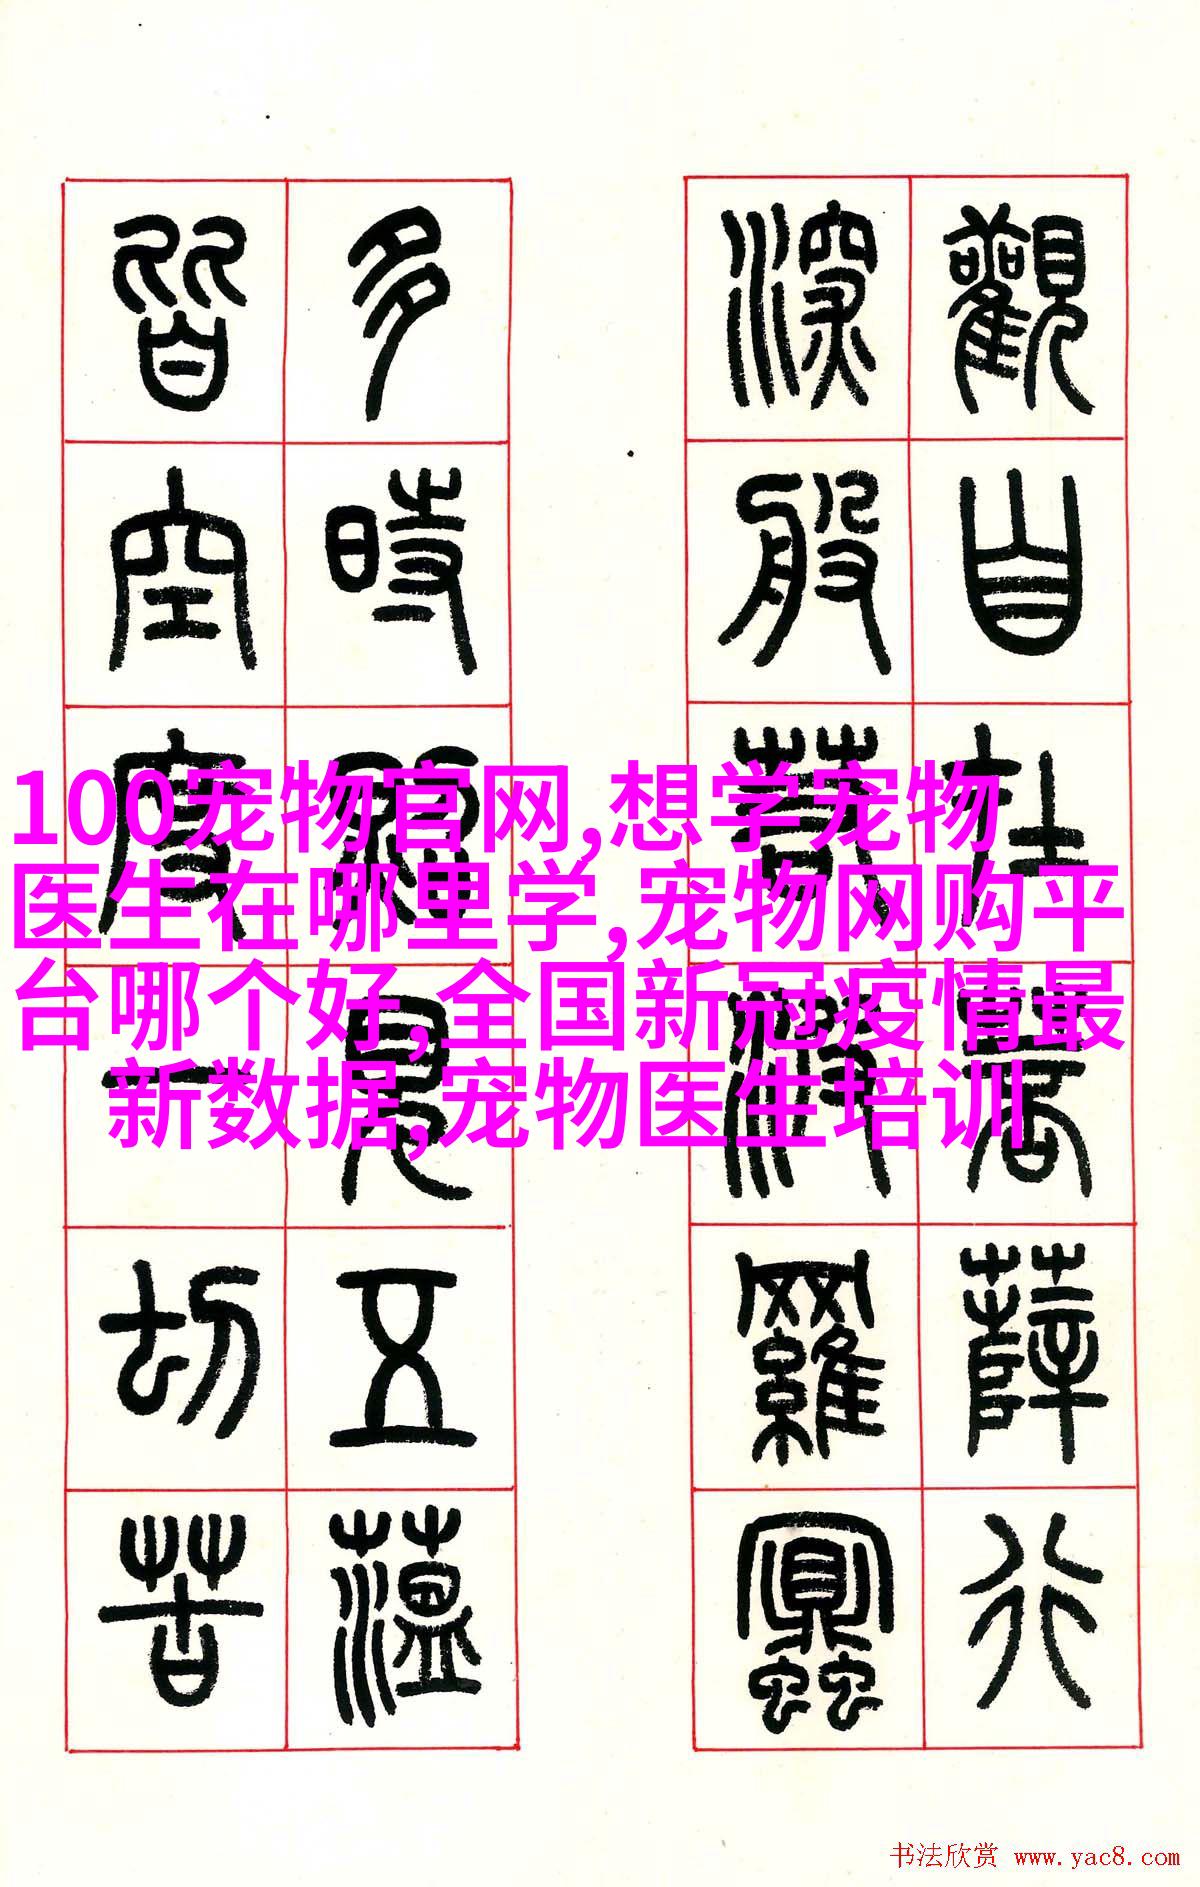 觀自在菩薩行
深般若波羅蜜
多時照見五蘊
皆空度一切苦
100宠物官网,想学宠物
医生在哪里学,宠物网购平
台哪个好,全国新冠疫情最
新数据,宠物医生培训
书法欣赏 www.yac8.com